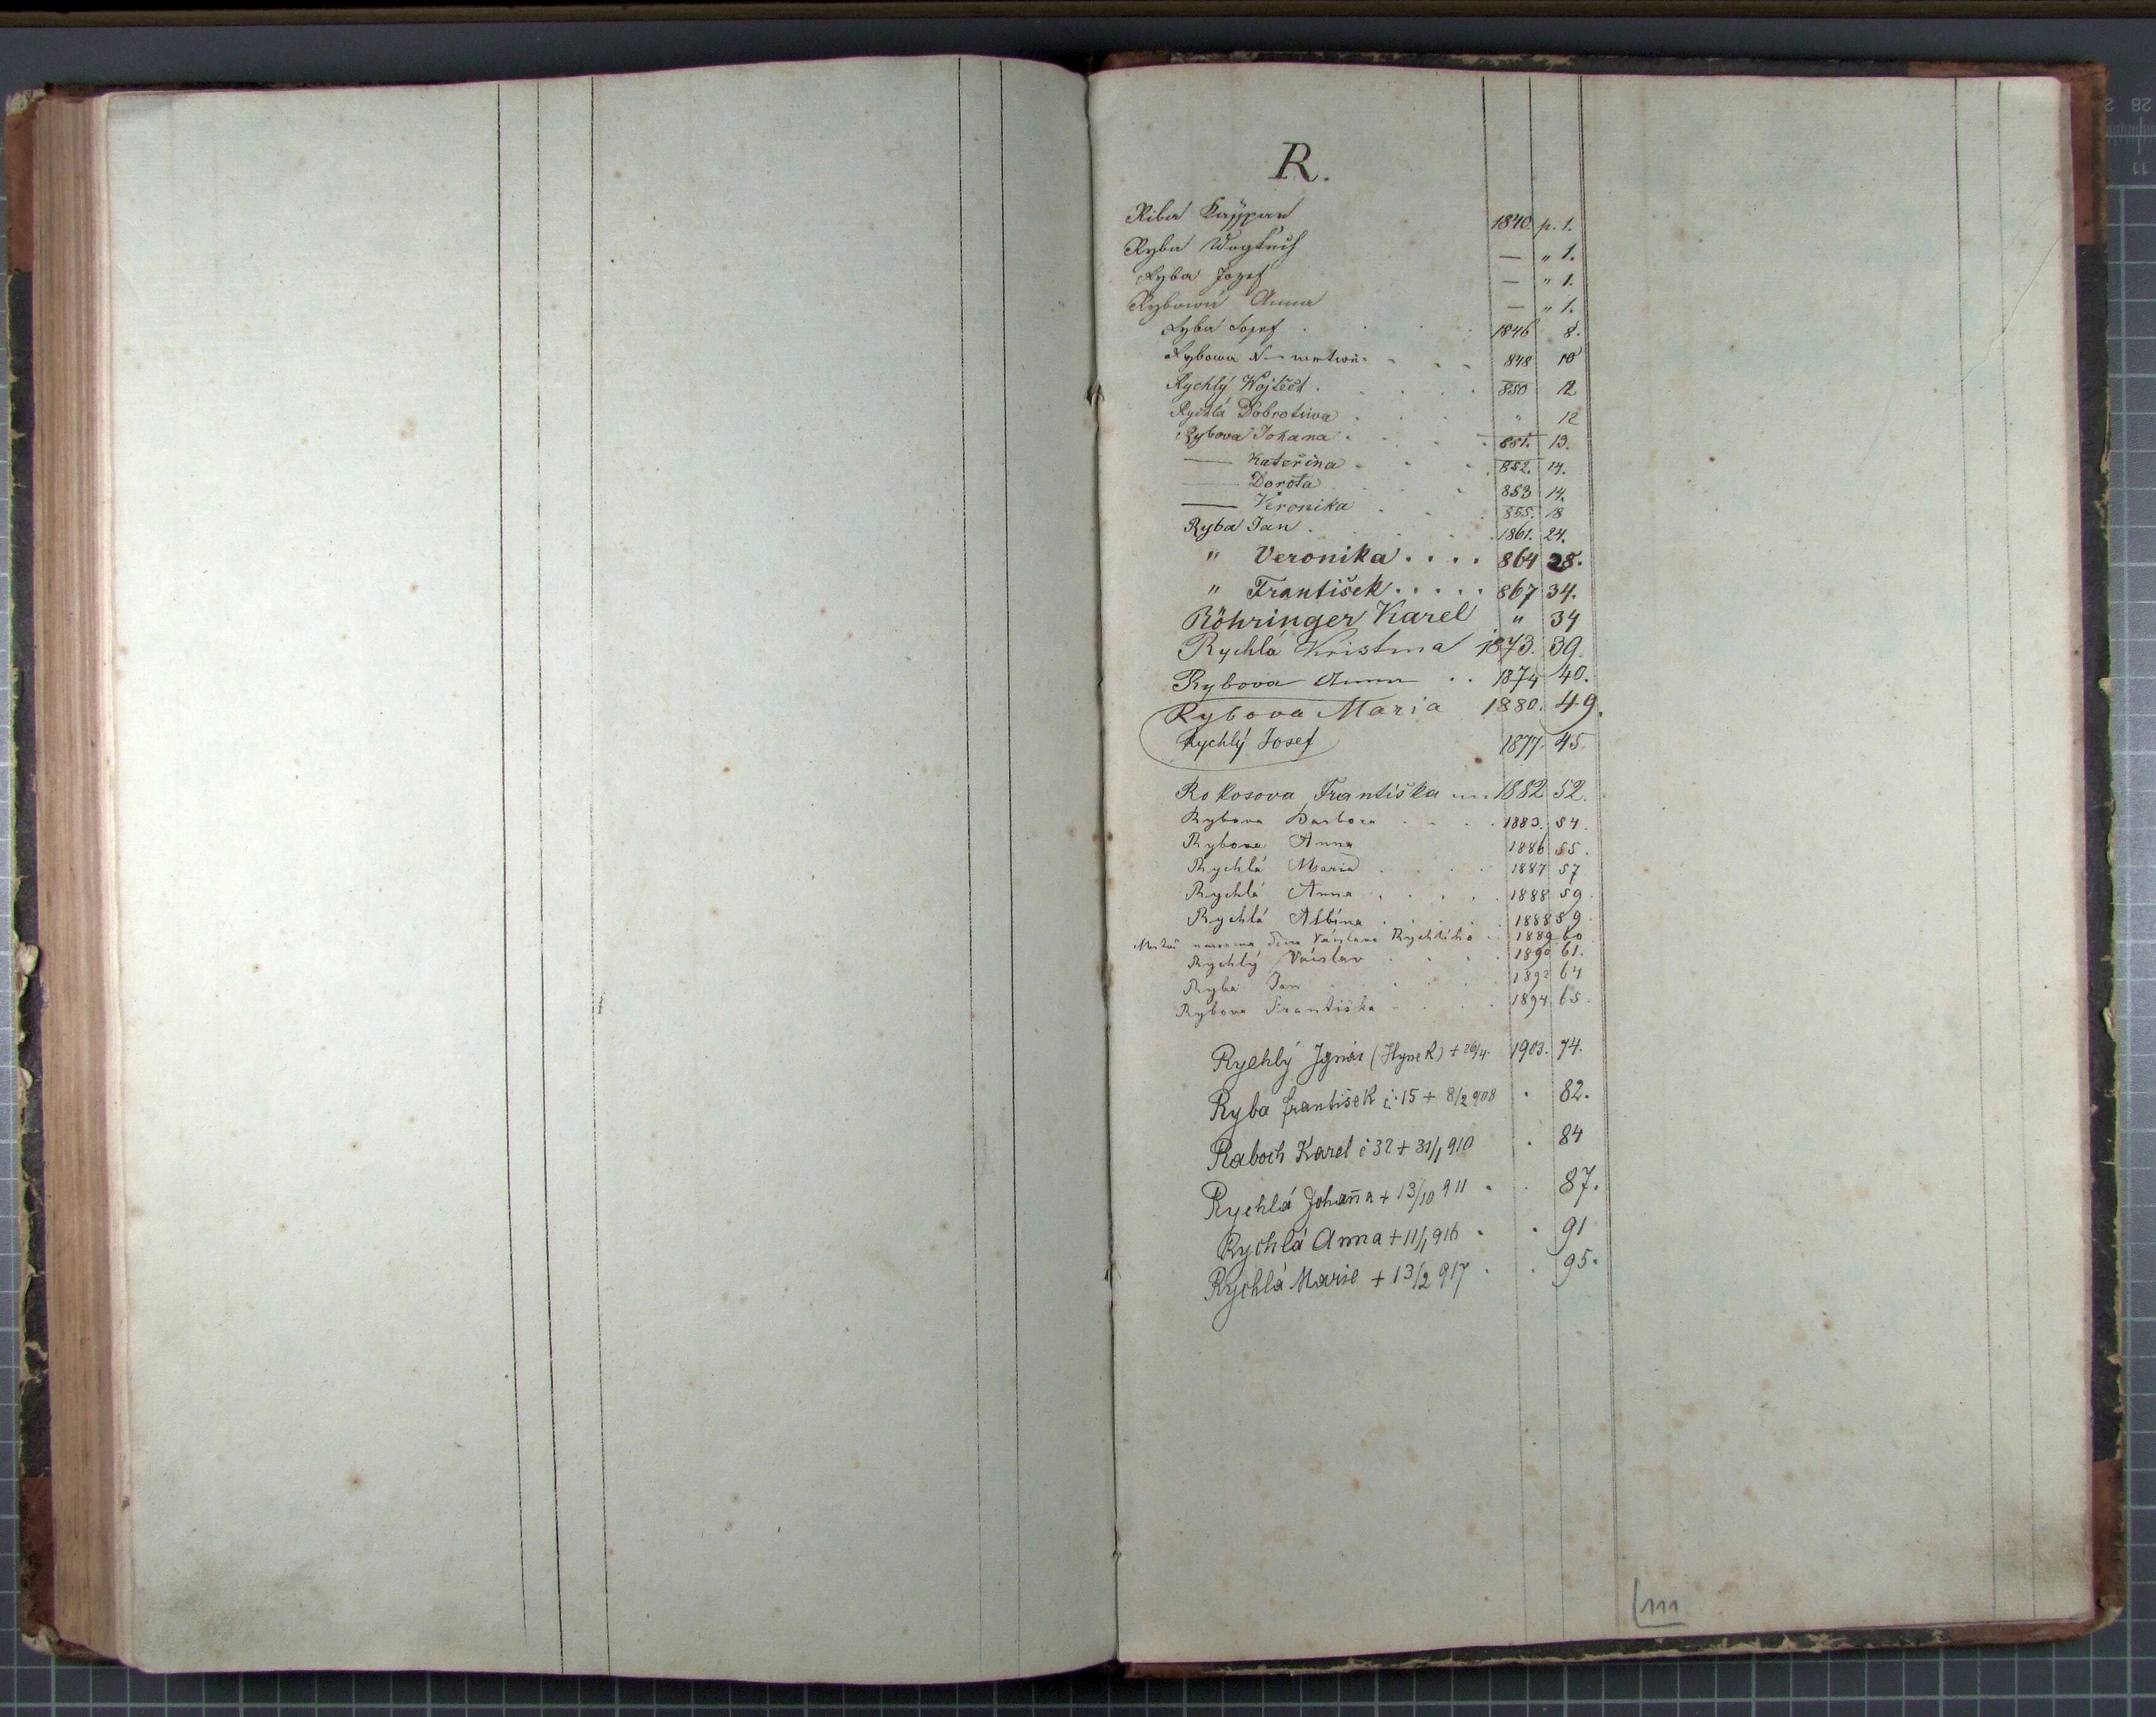 R.
Riba Kasspar 1840. p. 1.
Ryba Wogtěch — " 1.
Ryba Jozef — " 1.
Rybowá Anna — " 1.
Ryba Jozef . . . 1846 8.
Rybowa N— mrtwá . . . 848 10
Rychlý Wojtěch . . . . 850 12
Rychlá Dobrotiwa . . . " 12
Rybova Johana . . . . 851. 13.
— Kateřina . . . 852. 14.
— Dorota . . . 853 14.
— Veronika . . . 855. 18
Ryba Jan . . . . 1861. 24.
" Veronika . . . . 864 28.
" František . . . . . 867 34.
Röhringer Karel " 34
Rychlá Kristina 1873. 39.
Rybova Anna . . 1874 40.
Rybova Maria 1880. 49.
Rychlý Josef 1877. 45.
Rokosova Františka 1882 52.
Rybova Barbora . . . . 1883. 54.
Rybova Anna 1886 55.
Rychlá Maria . . . . 1887 57
Rychlá Anna . . . . . 1888 59.
Rychlá Albína . . . . 1888 59.
Václava Rychlého . . 1889 60
Rychlý Václav . . . . 1890 61.
Ryba Jan . . . . 1892 64
Rybova Františka . . . . 1894 65.
Rychlý Ignác (Hynek) + 26/4. 1903. 74.
Ryba František č. 15 + 8/2 908 . 82.
Raboch Karel č 32 + 31/1 910 . 84
Rychlá Johan̄a + 13/10 911 . . 87.
Rychlá Anna + 11/1 916 . . 91
Rychlá Marie + 13/2 917 . . 95.
111